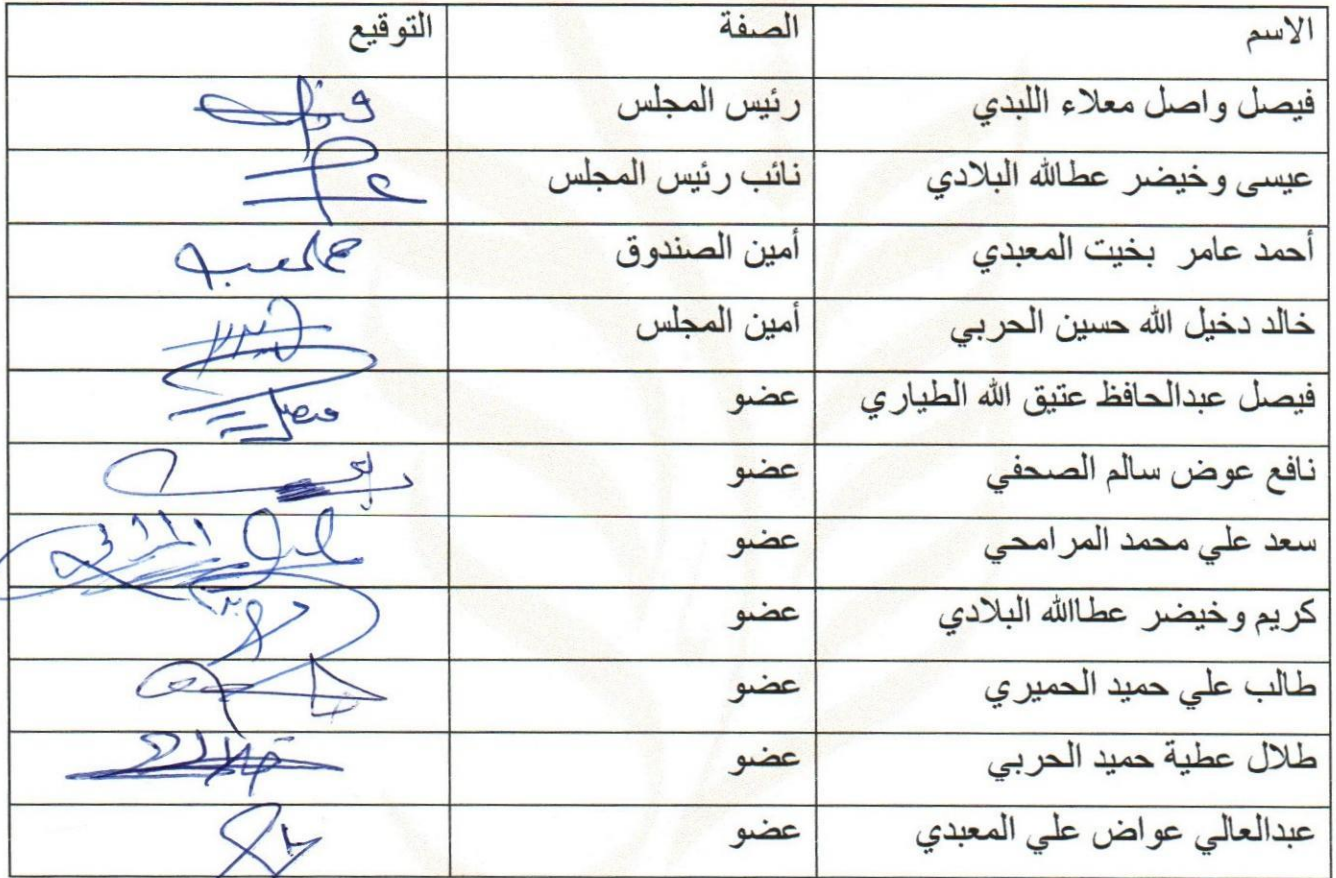 الاسم الصفة التوقيع
فيصل واصل معلاء اللبدي رئيس المجلس
عيسى وخيضر عطالله البلادي نائب رئيس المجلس
أحمد عامر بخيت المعبدي أمين الصندوق
خالد دخيل الله حسين الحربي أمين المجلس
فيصل عبدالحافظ عتيق الله الطياري عضو
نافع عوض سالم الصحفي عضو
سعد علي محمد المرامحي عضو
كريم وخيضر عطاالله البلادي عضو
طالب علي حميد الحميري عضو
طلال عطية حميد الحربي عضو
عبدالعالي عواض علي المعبدي عضو